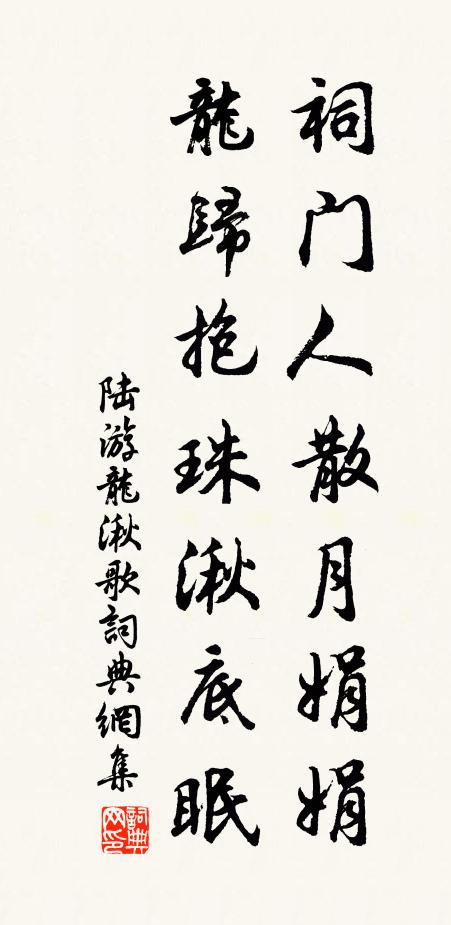 祠门人散月娟娟
龍歸抱珠湫底眠
陆游龍湫歌詞典網集
詞典网印